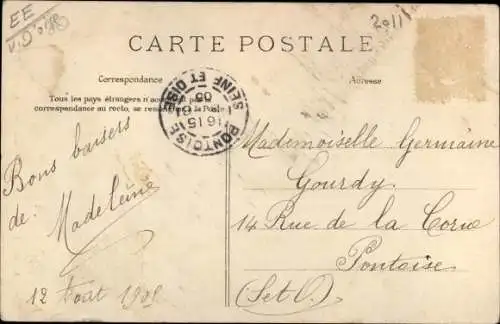 EE
CARTE POSTALE
Correspondance
Adresse
Tous les pays étrangers n'acceptent pas la
correspondance au recto, se renseigner à la Poste
PONTOISE
SEINE ET OISE
16 15
05
Bons baisers
de
Madeleine
12 Août 1905
Mademoiselle Germaine
Gourdy
14 Rue de la Corne
Pontoise
(Set O.)